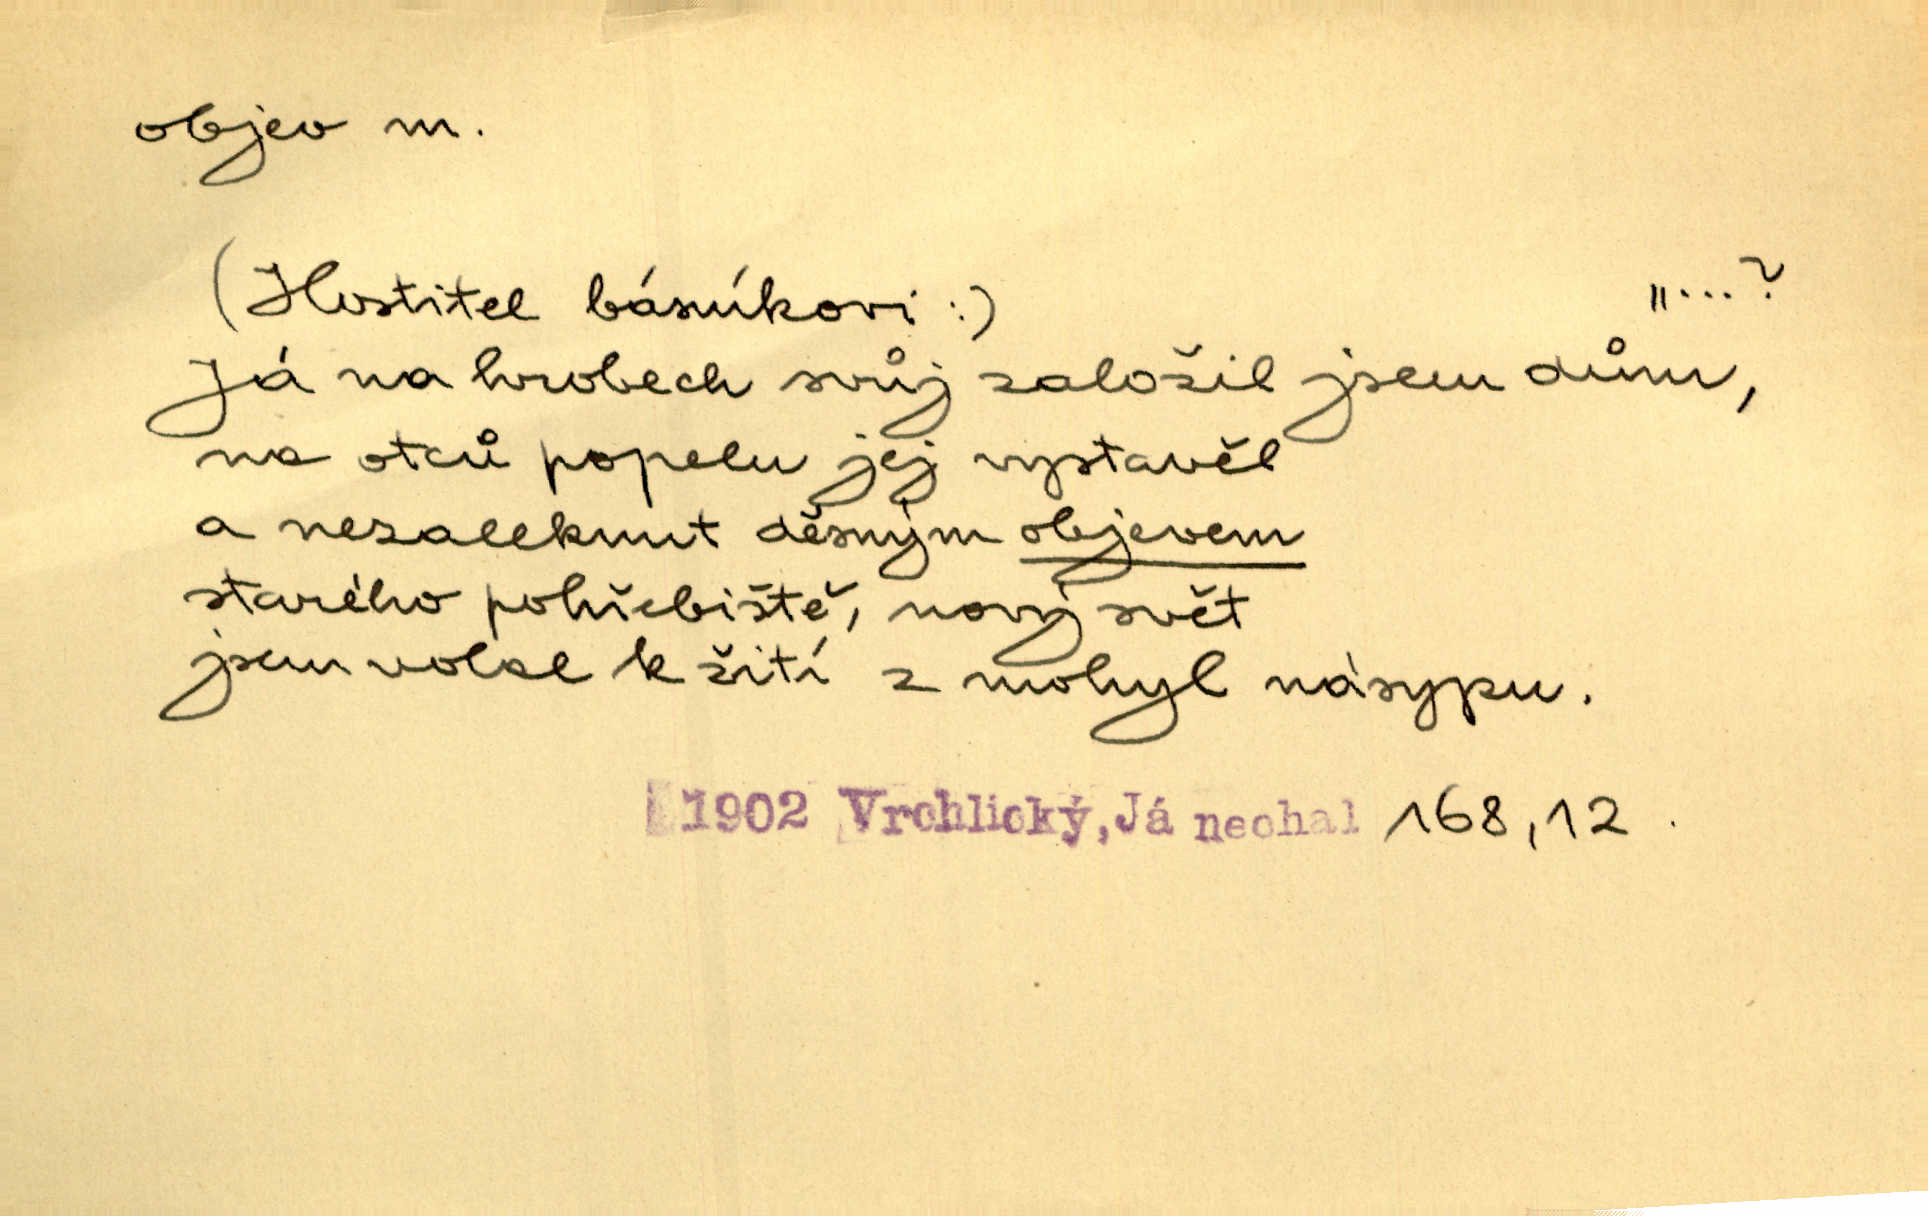 objev m.
(Hostitel básníkovi:) „...?
Já na hrobech svůj založil jsem dům,
na otců popelu jej vystavěl
a nezaleknut děsným objevem
starého pohřebiště, nový svět
jsem volal k žití z mohyl násypu.
1902 Vrchlický, Já nechal 168,12.